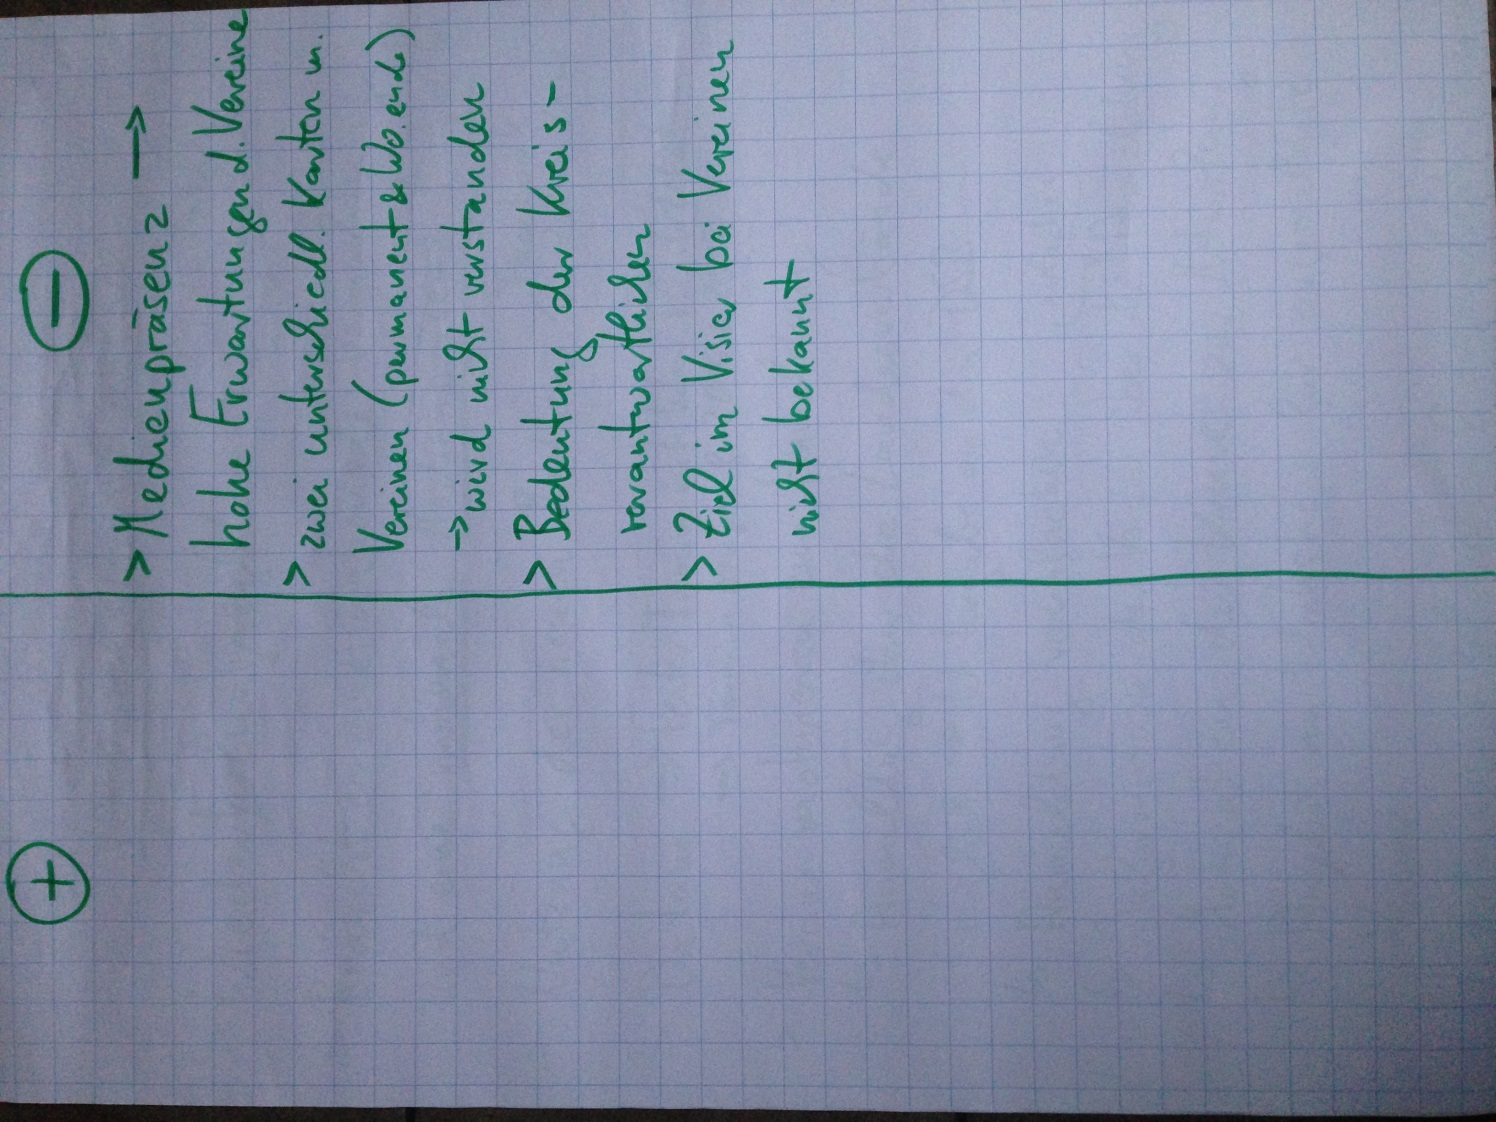 +
−
> Medienpräsenz →
hohe Erwartungen d. Vereine
> zwei unterschiedl. Karten m.
Vereinen (permanent & Wo.ende)
→ wird nicht verstanden
> Bedeutung der Kreis-
verantwortlichen
> Ziel im Visier bei Vereinen
nicht bekannt